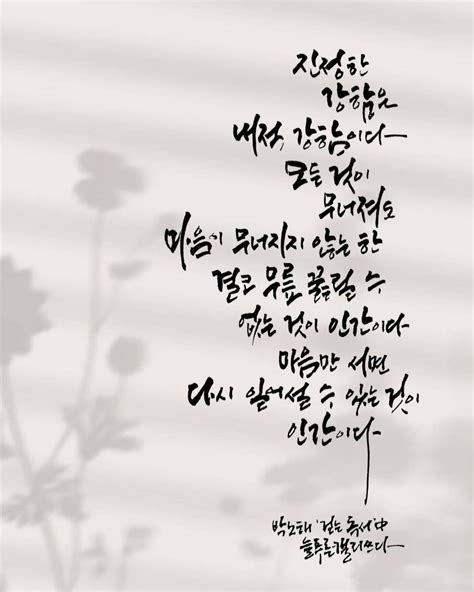 진정한
강함은
내적 강함이다
모든 것이
무너져도
마음이 무너지지 않는 한
결코 무릎 꿇릴 수
없는 것이 인간이다
마음만 서면
다시 일어설 수 있는 것이
인간이다
박노해 '걷는 독서' 中
늘푸른캘리쓰다